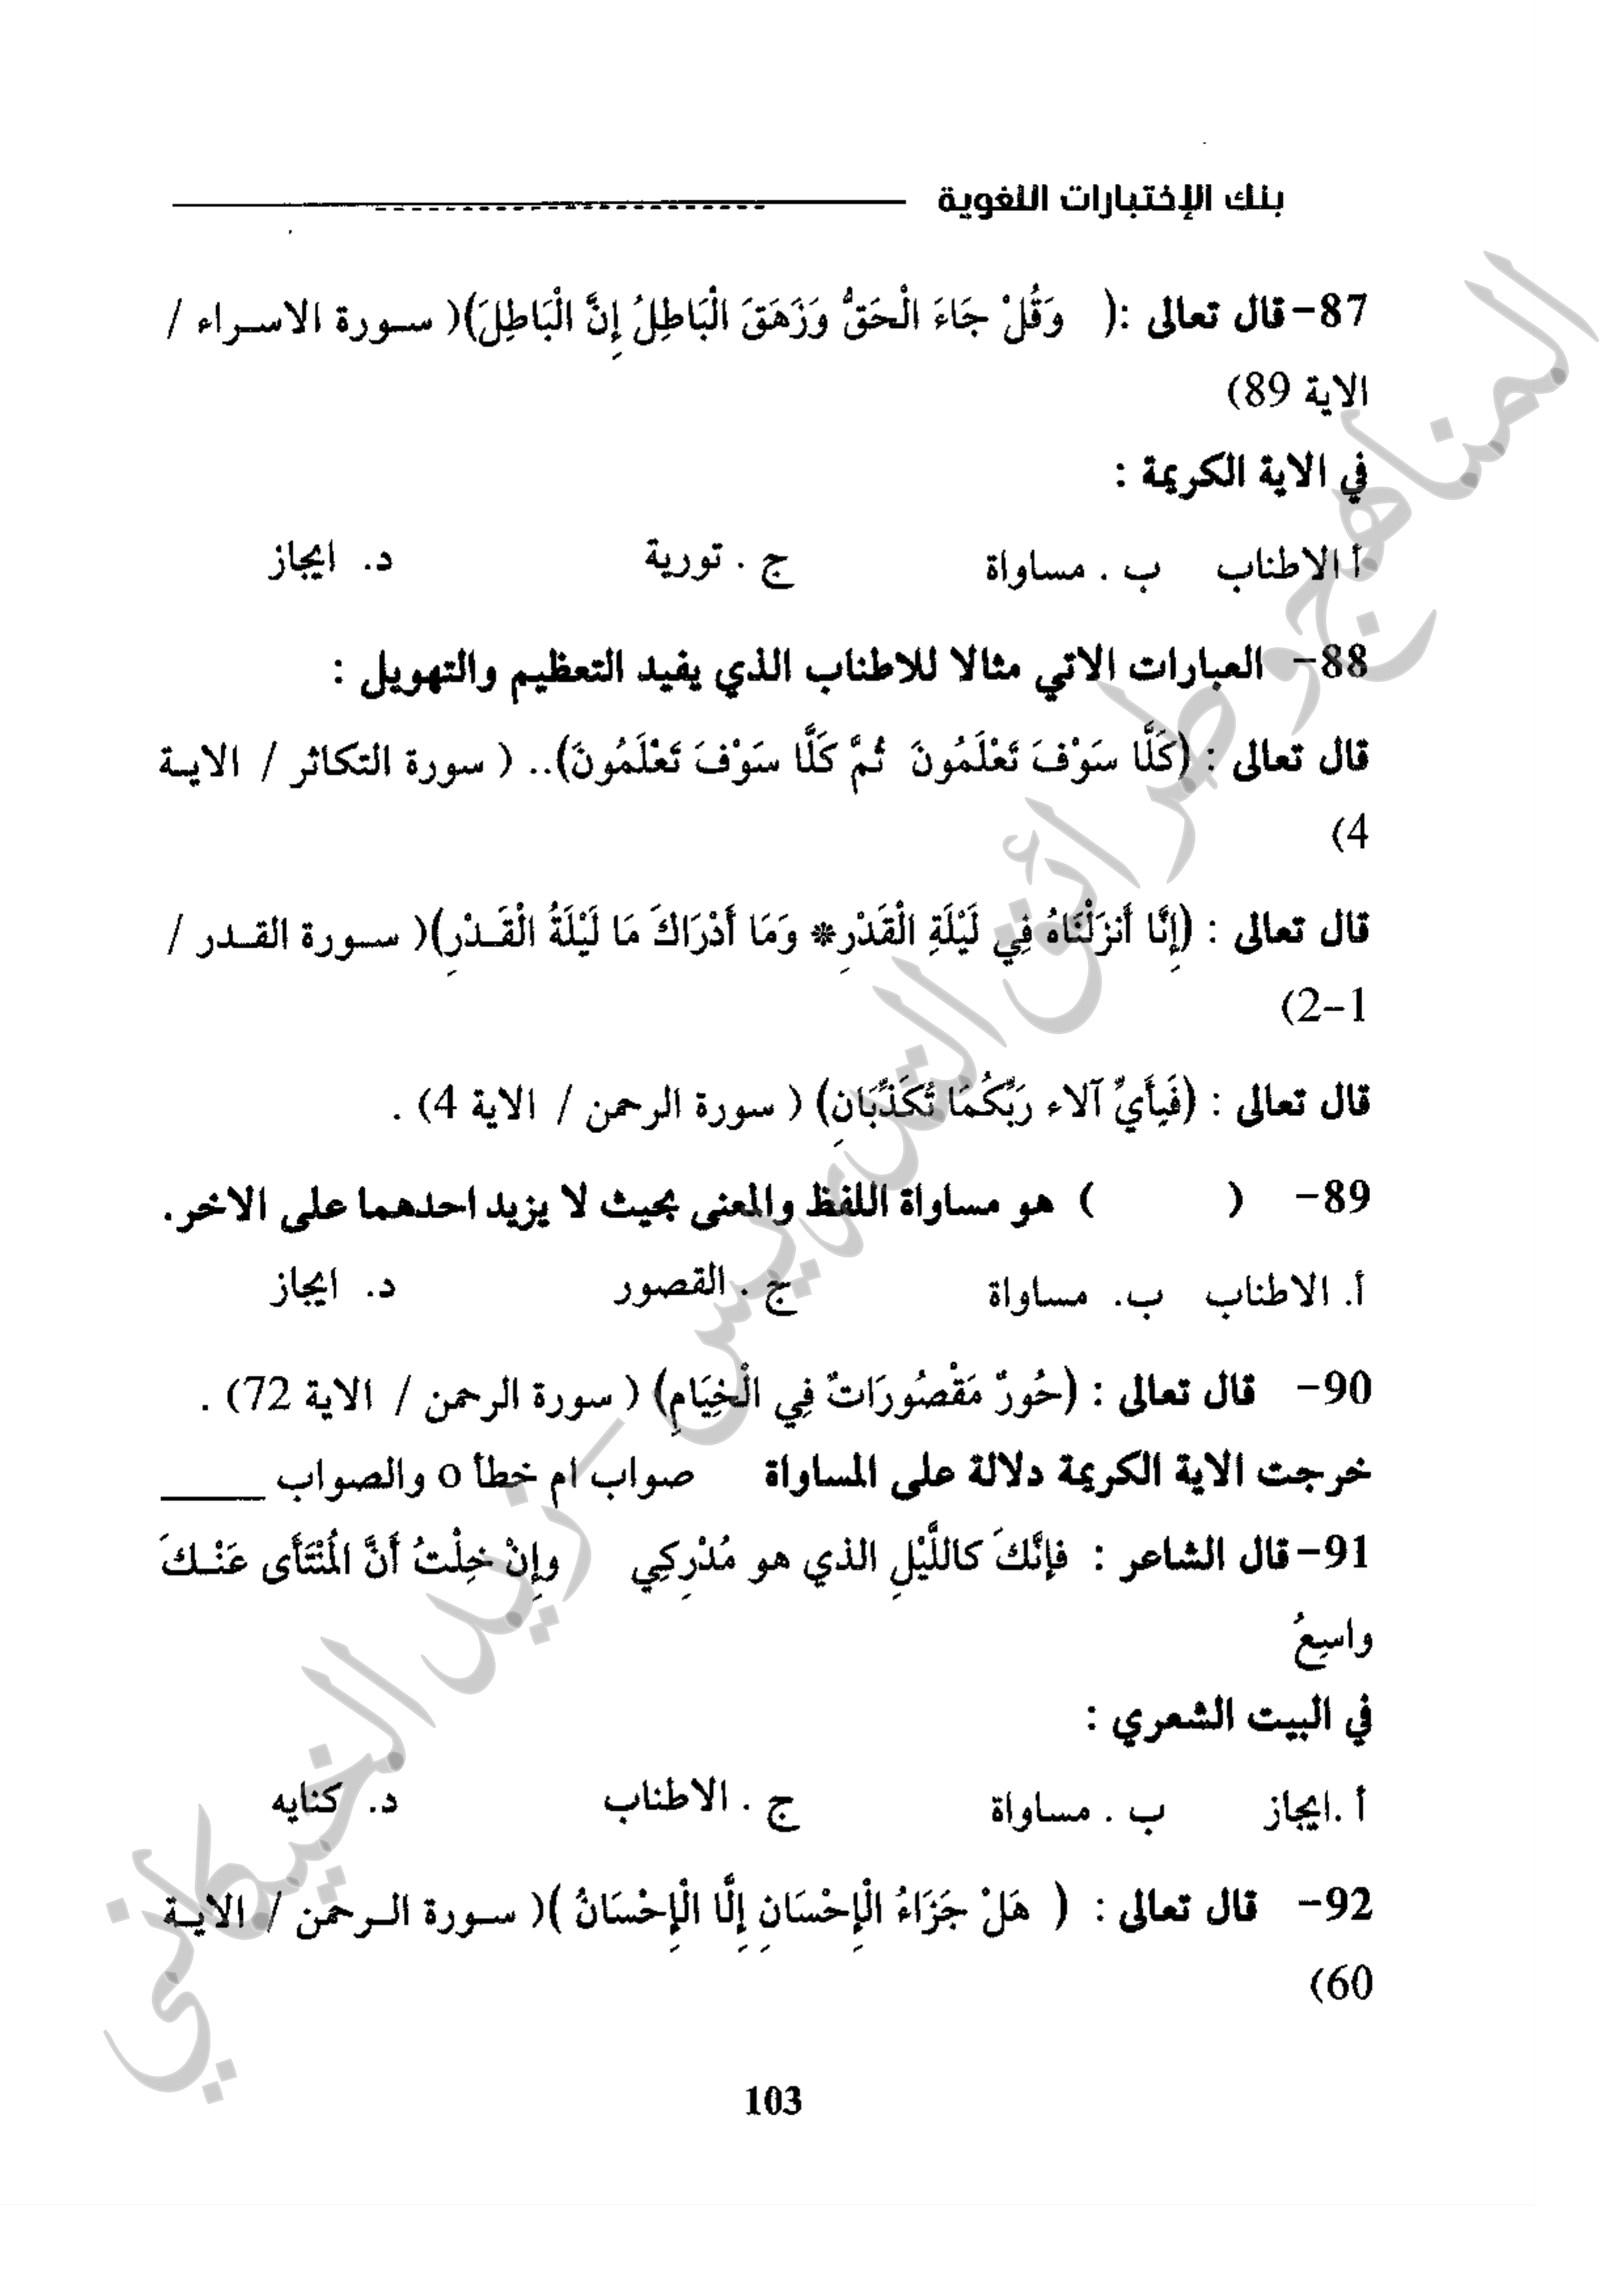 بنك الإختبارات اللغوية
87- قال تعالى :( وَقُلْ جَاءَ الْحَقُّ وَزَهَقَ الْبَاطِلُ إِنَّ الْبَاطِلَ)( سورة الاسراء /
الاية 89)
في الاية الكريمة :
أ الاطناب ب . مساواة ج . تورية د. ايجاز
88- العبارات الاتي مثالا للاطناب الذي يفيد التعظيم والتهويل :
قال تعالى : (كَلَّا سَوْفَ تَعْلَمُونَ ثُمَّ كَلَّا سَوْفَ تَعْلَمُونَ).. ( سورة التكاثر / الاية
4)
قال تعالى : (إِنَّا أَنزَلْنَاهُ فِي لَيْلَةِ الْقَدْرِ* وَمَا أَدْرَاكَ مَا لَيْلَةُ الْقَدْرِ)( سورة القدر /
1-2)
قال تعالى : (فَبِأَيِّ آلاء رَبِّكُمَا تُكَذِّبَانِ) ( سورة الرحمن / الاية 4) .
89- ( ) هو مساواة اللفظ والمعنى بحيث لا يزيد احدهما على الاخر.
أ. الاطناب ب. مساواة ج . القصور د. ايجاز
90- قال تعالى : (حُورٌ مَقْصُورَاتٌ فِي الْخِيَامِ) ( سورة الرحمن / الاية 72) .
خرجت الاية الكريمة دلالة على المساواة صواب ام خطأ o والصواب _____
91- قال الشاعر : فإنَّكَ كاللَّيْلِ الذي هو مُدْرِكِي وإِنْ خِلْتُ أَنَّ المُنْتَأَى عَنْكَ
واسِعُ
في البيت الشعري :
أ .ايجاز ب . مساواة ج . الاطناب د. كنايه
92- قال تعالى : ( هَلْ جَزَاءُ الْإِحْسَانِ إِلَّا الْإِحْسَانُ )( سورة الرحمن / الاية
60)
103
المناهج وطرائق التدريس - زيد الخيكاني